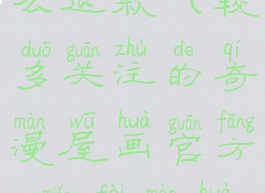 么这款（较
duō guān zhù de qí
多关注的奇
màn wū huà guān fāng
漫屋画官方